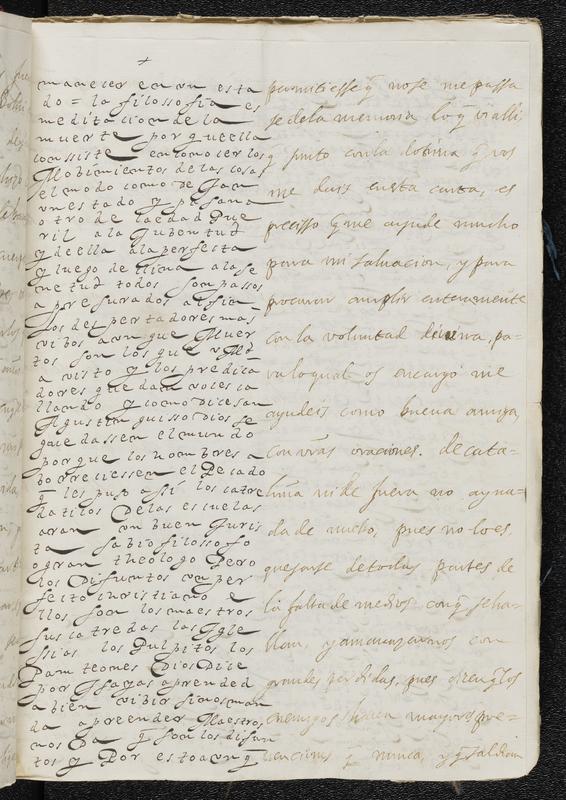 manecer en un esta
do = la filossofia es
meditacion de la
muerte porque ella
conssiste en conocer los
Mobimientos de las cosas
el modo como se pasan
un estado y pasan a
otro de la edad Pue
ril a la Gubentud
y de ella a la perfetta
y luego declina a la se
netud todos son passos
apresurados al fin
los despertadores mas
vibos aunque Muer
tos son los que V. Md
a visto y los predica
dores que dan voces ca
llando y como dice san
Agustin quisso Dios se
quedassen el mundo
porque los hombres a
borreciessen el Pecado
q les puso assi los catre
daticos De las escuelas
aran un buen Juris
ta sabio filossofo
o gran theologo Pero
los Difuntos un per
feito christiano e
llos son los maestros
sus catredas las Igle
ssias los Pulpitos los
Panteones Dios Dice
por Isayas aprended
a bien vibir si nos man
da aprender Maestros
nos Da q son los difun
tos y Por esto aunq
permitiesse q no se me passa
se de la memoria lo q vi alli
y junto con la dotrina q vos
me dais en esta carta, es
precisso q me ayude mucho
para mi saluacion, y para
procurar cumplir enteramente
con la voluntad divina, pa-
ra lo qual os encargo me
ayudeis como buena amiga,
con vras oraciones. de cata-
luña ni de fuera no ay na-
da de nuebo, pues no lo es
quejarse de todas partes de
la falta de medios con q se ha-
llan, y amenazarnos con
grandes perdidas, pues dicen q los
enemigos hacen mayores pre-
uenciones q nunca, y q saldran